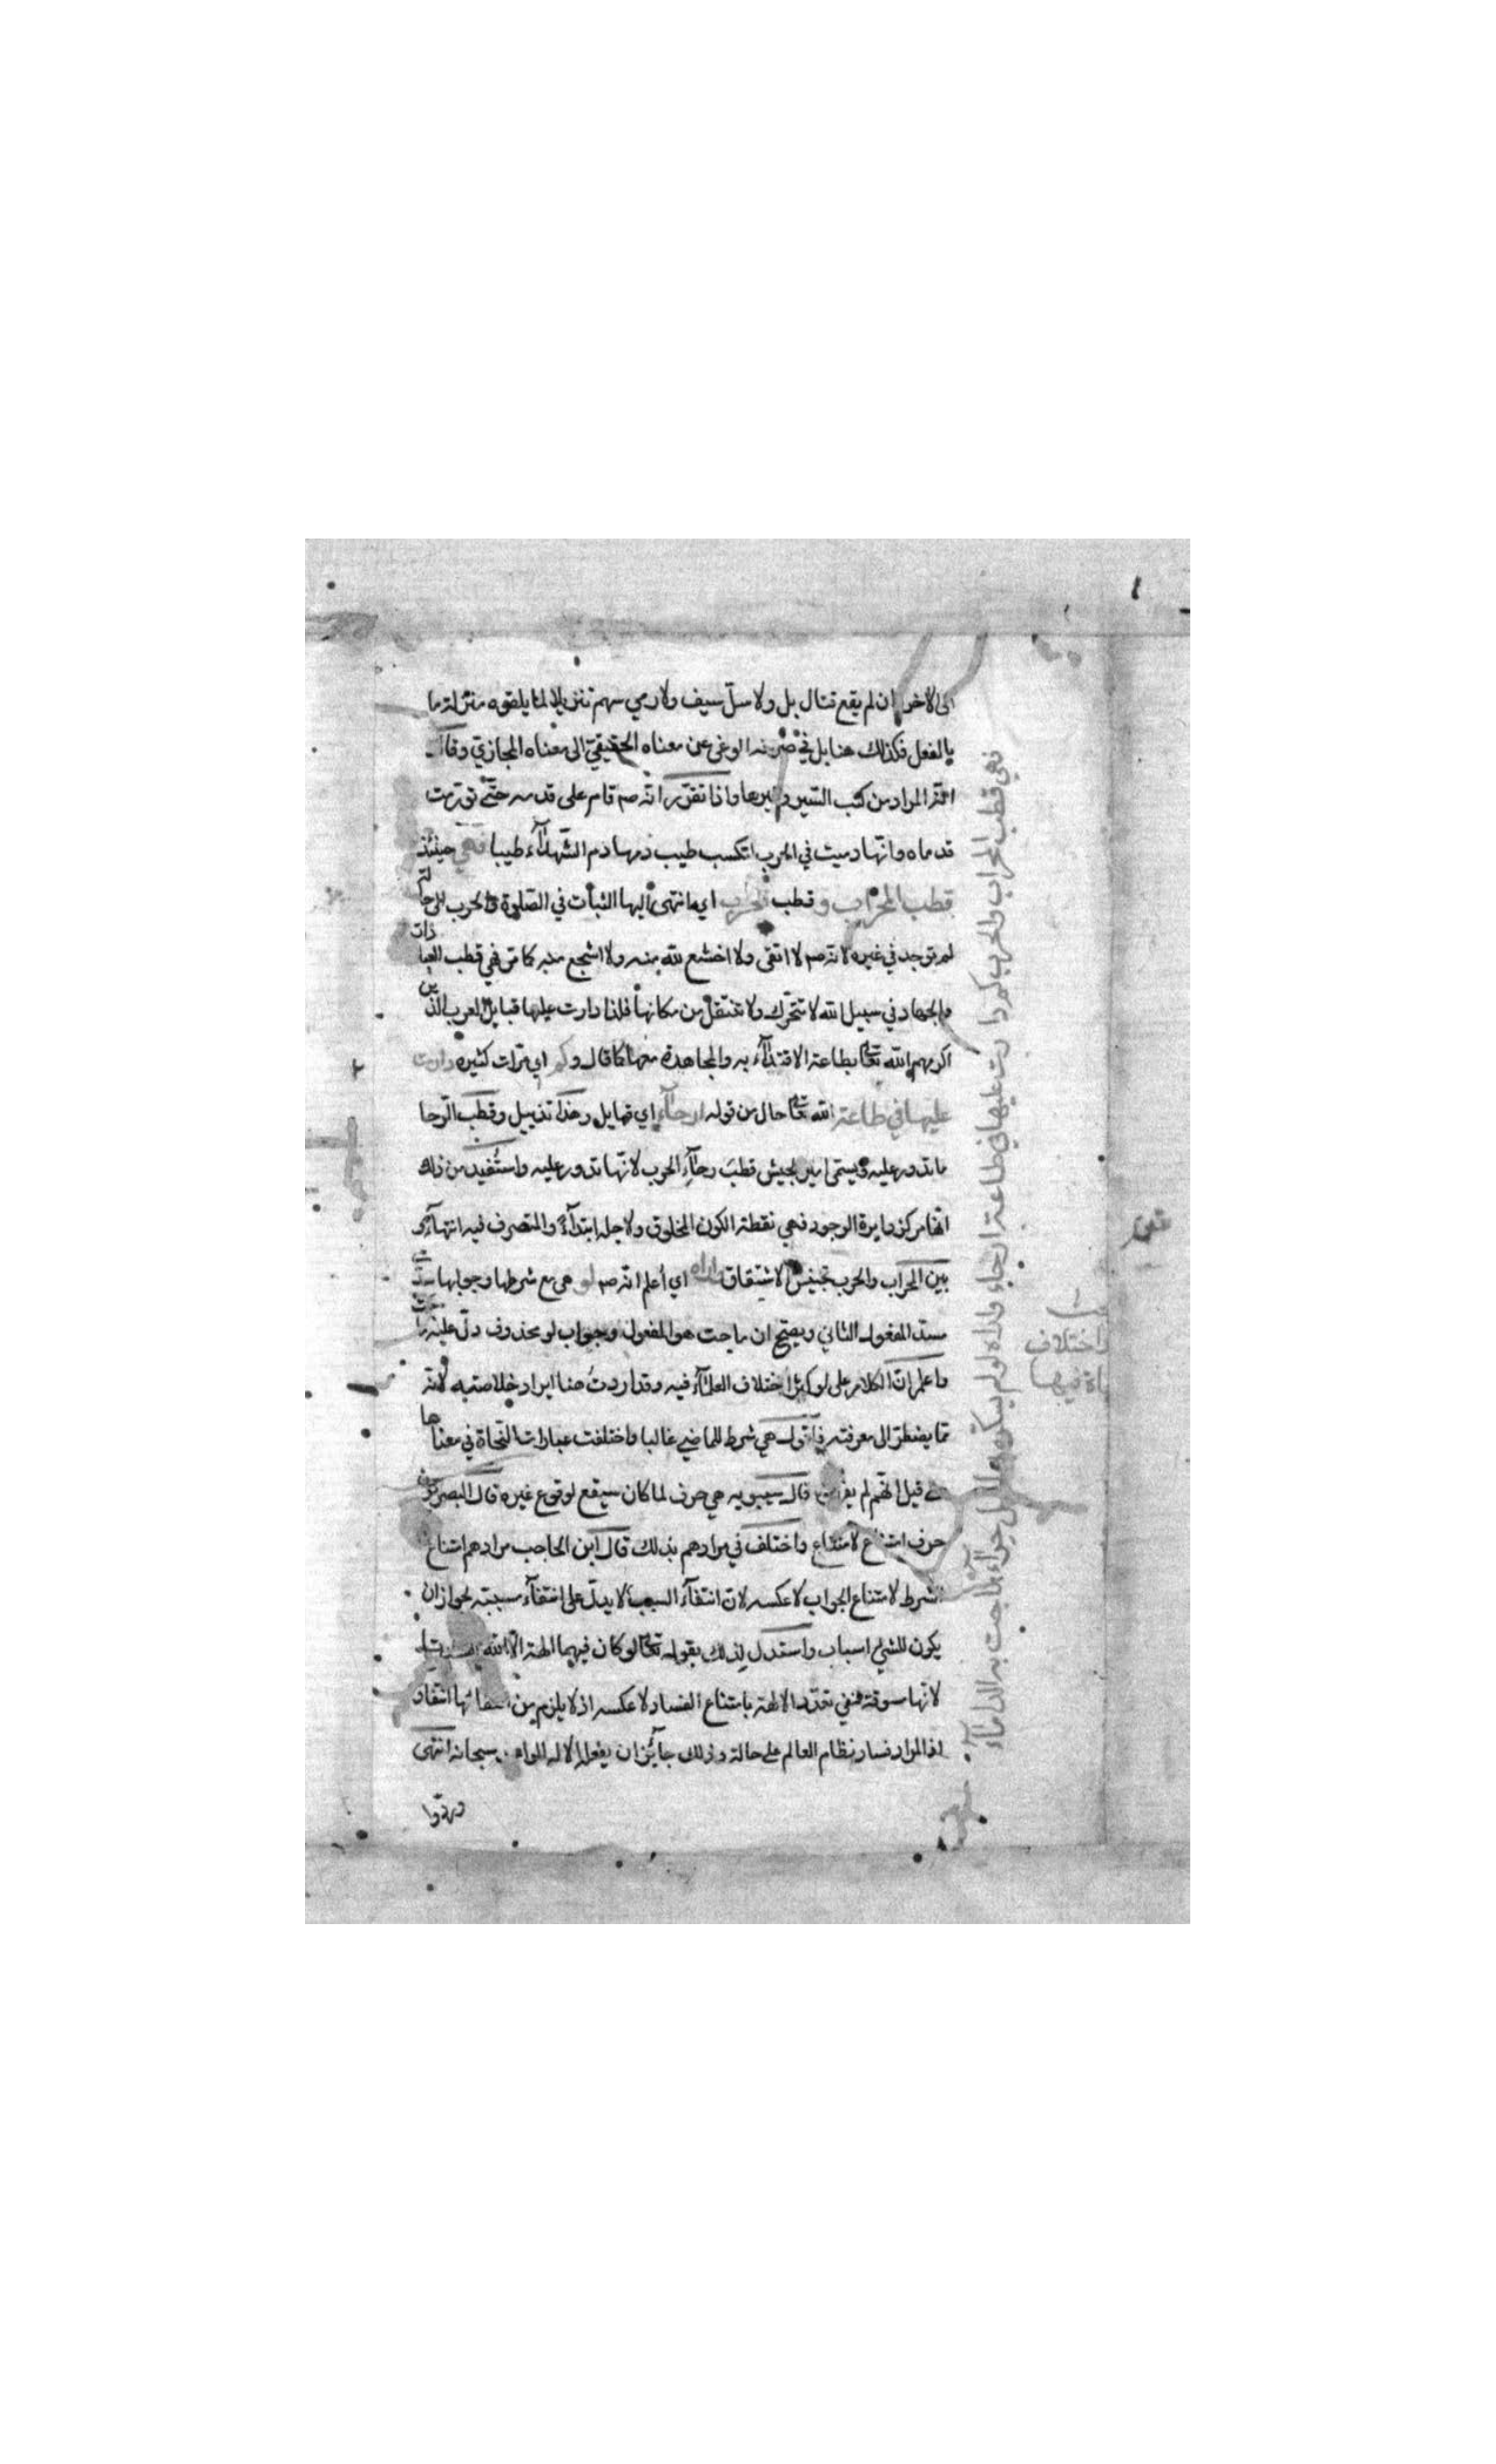 الى الاخر ان لم يقع قتال بل ولا سلّ سيف ولا رمي سهم تنزيلا لما يلقوه منزلة ما
بالفعل فكذلك هنا بل في صرفه الوغى عن معناه الحقيقيّ الى معناه المجازيّ وقال
انّه المراد من كتب السّير وغيرها واذا تقرّر انّه صم قام على قدميه حتّى تورّمت
قدماه وانّها دميت في الحرب اكتسب طيب دمها دم الشّهدآء طيبا فهي حينئذ
قطب المحراب و قطب الحرب اي ما انتهى اليها الثبات في الصّلوة والحرب
لم توجد في غيره لانّه صم لا اتقى ولا اخشع لله منه ولا اشجع منه كما مرّ ففي قطب
والجهاد في سبيل الله لا تتحرّك ولا تنتقل من مكانها فلذا دارت عليها قبايل العرب الذين
اكرمهم الله تعا بطاعته الاقتدآء به والمجاهدة معها كما قال و كم اي مرّات كثيره دارت
عليها في طاعة الله تعا حال من قوله ارحآء اي قبايل وهذا تذييل وقطب الرّحا
ما تدور عليه ويسمّى امير الجيش قطبَ رحآءِ الحرب لانّها تدور عليه واستُفيد من ذلك
انّها مركز دايرة الوجود فهي نقطة الكون المخلوق ولاجله ابتدآءً والمتصرف فيه انتهآءً و
بين المحراب والحرب تجنيس الاشتقاق واراه اي اعلم انّه صم لو هي مع شرطها وجوابها سدّت
مسدّ المفعول الثاني ويصحّ ان ماجت هو المفعول وجواب لو محذوف دلّ عليه ماجت
واعلم انّ الكلام على لو كثر اختلاف العلمآء فيه وقد اردتُ هنا ايراد خلاصته لانّه
ممّا يضطرّ الى معرفته فاقول هي شرط للماضي غالبا واختلفت عبارات النّحاة في معناها
قيل انّهم لم قال سيبويه هي حرف لما كان سيقع لوقوع غيره قال البصريّون
حرف امتناع لامتناع واختلف في مرادهم بذلك قال ابن الحاجب مرادهم امتناع
الشرط لامتناع الجواب لا عكسه لانّ انتفآء السبب لا يدلّ على انتفآء مسببه لجواز ان
يكون للشئ اسباب واستدل لذلك بقوله تعا لو كان فيهما الهة الّا الله لفسدتا
لانّها سوقة لنفي تعدّد الالهة بامتناع الفساد لا عكسه اذ لا يلزم من انتفائها انتفاؤ
اذ المراد فساد نظام العالم على حالة وذلك جآئز ان يفعله الاله الواحد سبحانه انتهى
وردّوا
فهي قطب المحراب والحرب كم دارت عليها في طاعة ارحاء واراه لو لم يسكن بها قبل حراء ماجت به الداماء
اختلاف